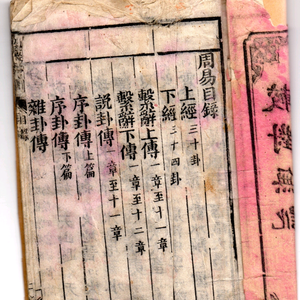 周易目錄
上經 三十卦
下經 三十四卦
繫辭上傳 一章至十一章
繫辭下傳 一章至十二章
說卦傳 一章至十一章
序卦傳 上篇
序卦傳 下篇
雜卦傳